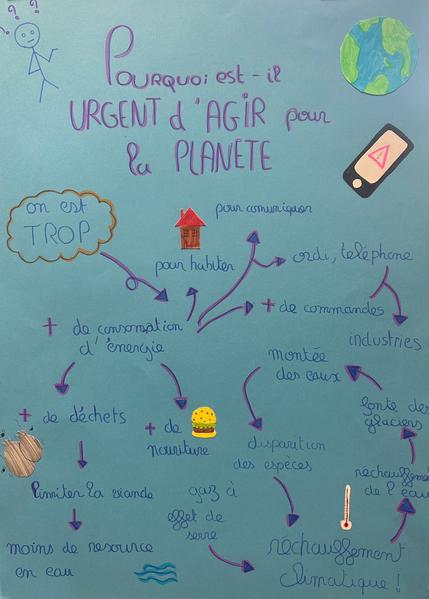 ? ? ?
Pourquoi est-il
URGENT d'AGIR pour
la PLANETE
on est
TROP
pour comuniquer
pour habiter
ordi, teléphone
+ de consomation
d'énergie
+ de commandes
industries
montée
des eaux
fonte des
glaciers
+ de déchets
+ de
nouriture
disparition
des espèces
réchauffement
de l'eau
limiter la viande
gaz à
effet de
serre
moins de resource
en eau
réchauffement
climatique !